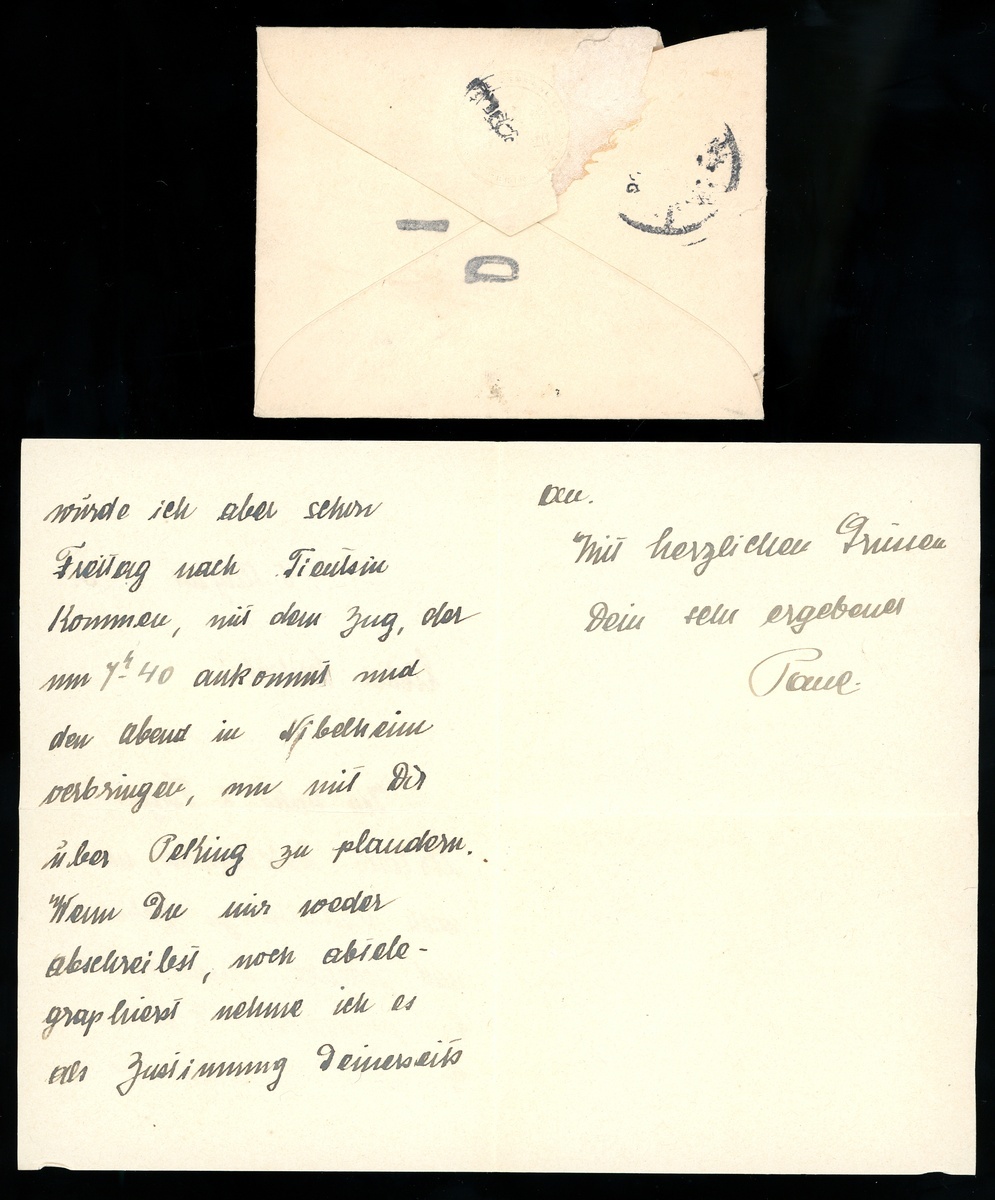 D
würde ich aber schon
Freitag nach Tientsin
Kommen, mit dem Zug, der
um 7h 40 ankommt und
den Abend in Nibelheim
verbringen, um mit Dir
über Peking zu plaudern.
Wenn Du mir weder
abschreibst, noch abtele-
graphierst nehme ich es
als Zustimmung Deinerseits
an.
Mit herzlichen Grüssen
Dein sehr ergebener
Paul.